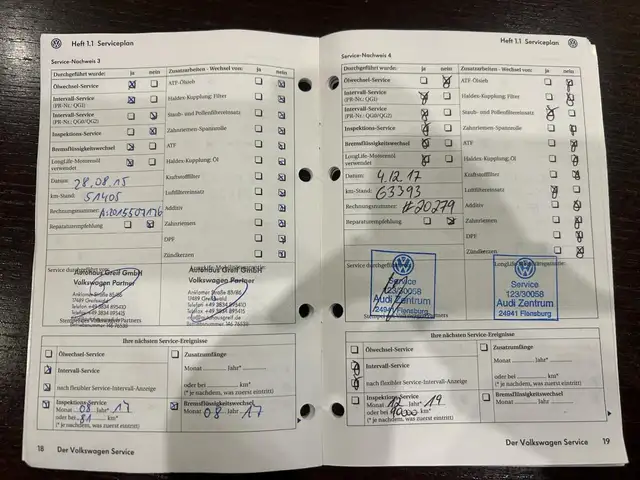 Heft 1.1 Serviceplan
Service-Nachweis 3
Durchgeführt wurde: ja nein
Ölwechsel-Service
Intervall-Service
(PR-Nr.: QG1)
Intervall-Service
(PR-Nr.: QG0/QG2)
Inspektions-Service
Bremsflüssigkeitswechsel
LongLife-Motorenöl
verwendet
Datum: 28.08.15
km-Stand: 51405
Rechnungsnummer:
Reparaturempfehlung
Zusatzarbeiten - Wechsel von: ja nein
ATF-Ölsieb
Haldex-Kupplung: Filter
Staub- und Pollenfiltereinsatz
Zahnriemen-Spannrolle
ATF
Haldex-Kupplung: Öl
Kraftstofffilter
Luftfiltereinsatz
Additiv
Zahnriemen
DPF
Zündkerzen
Service durchgeführt
Autohaus Greif GmbH
Volkswagen Partner
Anklamer Straße 85/86
17489 Greifswald
Autohaus Greif GmbH
Volkswagen Partner
Anklamer Straße 85/86
17489 Greifswald
Ihre nächsten Service-Ereignisse
Ölwechsel-Service
Intervall-Service
nach flexibler Service-Intervall-Anzeige
Inspektions-Service
Monat 08 Jahr* 17
oder bei 81 km*
(* je nachdem, was zuerst eintritt)
Zusatzumfänge
Monat Jahr*
oder bei km*
(* je nachdem, was zuerst eintritt)
Bremsflüssigkeitswechsel
Monat 08 Jahr 17
18 Der Volkswagen Service
Heft 1.1 Serviceplan
Service-Nachweis 4
Durchgeführt wurde: ja nein
Ölwechsel-Service
Intervall-Service
(PR-Nr.: QG1)
Intervall-Service
(PR-Nr.: QG0/QG2)
Inspektions-Service
Bremsflüssigkeitswechsel
LongLife-Motorenöl
verwendet
Datum: 4.12.17
km-Stand: 63393
Rechnungsnummer: #20279
Reparaturempfehlung
Zusatzarbeiten - Wechsel von: ja nein
ATF-Ölsieb
Haldex-Kupplung: Filter
Staub- und Pollenfiltereinsatz
Zahnriemen-Spannrolle
ATF
Haldex-Kupplung: Öl
Kraftstofffilter
Luftfiltereinsatz
Additiv
Zahnriemen
DPF
Zündkerzen
Service durchgeführt
Service
123/30058
Audi Zentrum
24941 Flensburg
LongLife-Mobilitätsgarantie:
Service
123/30058
Audi Zentrum
24941 Flensburg
Ihre nächsten Service-Ereignisse
Ölwechsel-Service
Intervall-Service
nach flexibler Service-Intervall-Anzeige
Inspektions-Service
Monat 12 Jahr* 19
oder bei km*
(* je nachdem, was zuerst eintritt)
Zusatzumfänge
Monat Jahr*
oder bei km*
(* je nachdem, was zuerst eintritt)
Bremsflüssigkeitswechsel
Monat Jahr
Der Volkswagen Service 19